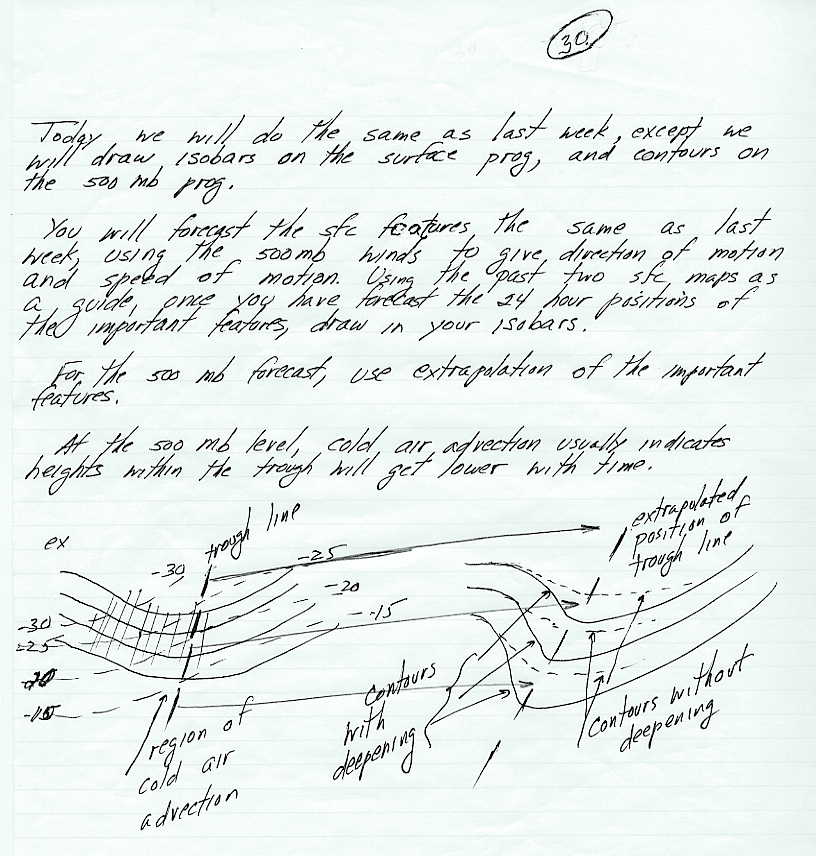 30.
Today we will do the same as last week, except we
will draw isobars on the surface prog, and contours on
the 500 mb prog.
You will forecast the sfc features the same as last
week, using the 500mb winds to give direction of motion
and speed of motion. Using the past two sfc maps as
a guide, once you have forecast the 24 hour positions of
the important features, draw in your isobars.
For the 500 mb forecast, use extrapolation of the important
features.
At the 500 mb level, cold air advection usually indicates
heights within the trough will get lower with time.
ex
trough line
extrapolated
position of
trough line
-30
-25
-20
-15
-30
-25
-20
-15
region of
cold air
advection
contours
with
deepening
contours without
deepening